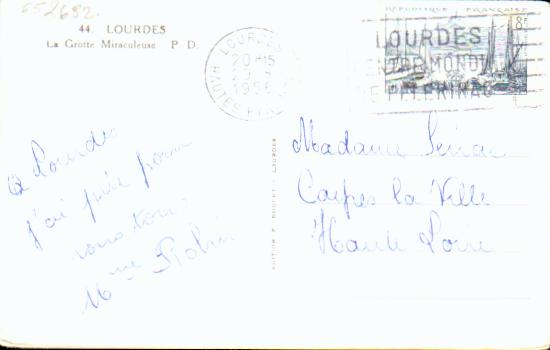 652692
44. LOURDES
La Grotte Miraculeuse P. D.
LOURDES
20H15
1956
HAUTES PYR
REPUBLIQUE FRANÇAISE
8F
LOURDES
CENTRE MONDIAL
DE PELERINAGE
A Lourdes
j'ai prié pour
vous tous
Mme Robin
EDITION P. DOUCET - LOURDES
Madame
la Ville
Haute Loire